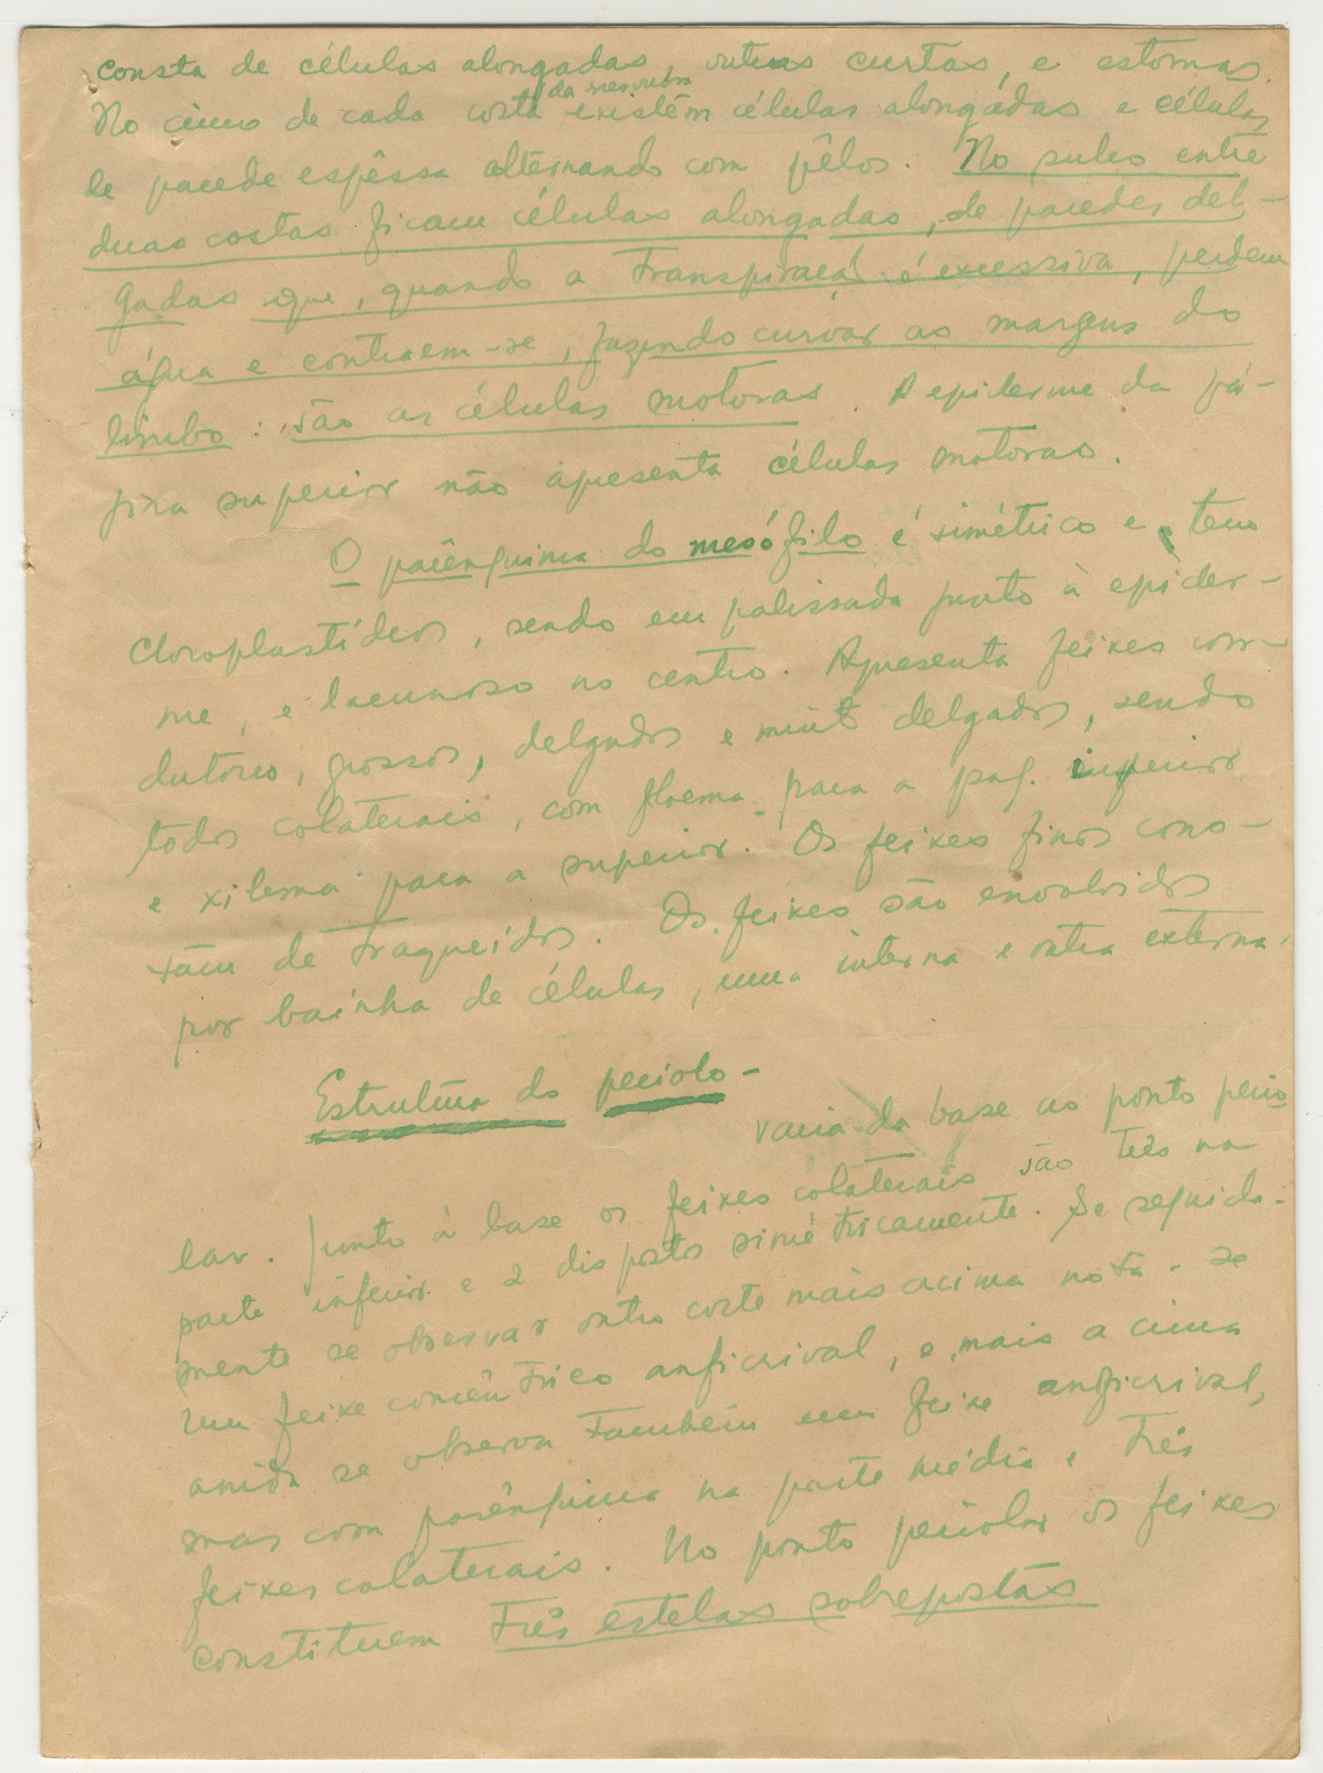 consta de células alongadas, outras curtas, e estomas.
No cimo de cada costa da nervura existem células alongadas e células
de parede espêssa alternando com pêlos. No sulco entre
duas costas ficam células alongadas, de paredes del-
gadas que, quando a transpiraçá é excessiva, perdem
água e contraem-se, fazendo curvar as margens do
limbo: são as células motoras. A epiderme da pá-
gina superior não apresenta células motoras.
O parênquima do mesófilo é simétrico e tem
cloroplastídeos, sendo em palissada junto à epider-
me, e lacunoso no centro. Apresenta feixes con-
dutores, grossos, delgados e muito delgados, sendo
todos colaterais, com floema para a pag. inferior
e xilema para a superior. Os feixes finos cons-
tam de traqueidos. Os feixes são envolvidos
por bainha de células, uma interna e outra externa.
Estrutura do pecíolo -
varia da base ao ponto pecio
lar. Junto à base os feixes colaterais são três na
parte inferior e 2 dispostos simètricamente. Se seguida-
mente se observar outro corte mais acima nota-se
um feixe concêntrico anficrival, e, mais acima
ainda se observa também um feixe anficrival,
mas com parênquima na parte média e três
feixes colaterais. No ponto peciolar os feixes
constituem três estelas sobrepostas